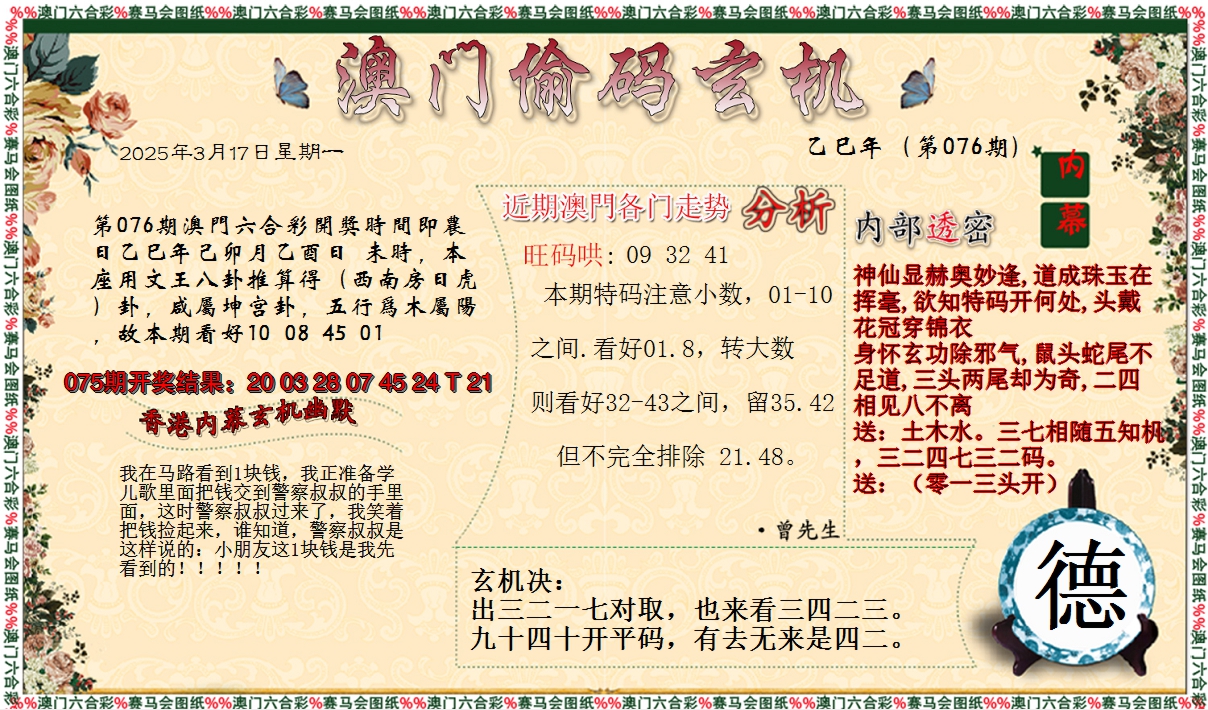 %%澳门六合彩%赛马会图纸%%澳门六合彩%赛马会图纸%%澳门六合彩%赛马会图纸%%澳门六合彩%赛马会图纸%%澳门六合彩%赛马会图纸%%澳门六合彩%赛马会图纸%%
澳门偷码玄机
2025年3月17日星期一
乙巳年（第076期）
内
幕
第076期澳門六合彩開獎時間即農
日乙巳年己卯月乙酉日 未時，本
座用文王八卦推算得（西南房日虎
）卦，咸屬坤宫卦，五行爲木屬陽
，故本期看好10 08 45 01
075期开奖结果：20 03 28 07 45 24 T 21
香港内幕玄机幽默
我在马路看到1块钱，我正准备学
儿歌里面把钱交到警察叔叔的手里
面，这时警察叔叔过来了，我笑着
把钱捡起来，谁知道，警察叔叔是
这样说的：小朋友这1块钱是我先
看到的！！！！！
近期澳門各门走势 分析
旺码哄: 09 32 41
本期特码注意小数，01-10
之间.看好01.8，转大数
则看好32-43之间，留35.42
但不完全排除 21.48。
·曾先生
内部透密
神仙显赫奥妙逢,道成珠玉在
挥毫,欲知特码开何处,头戴
花冠穿锦衣
身怀玄功除邪气,鼠头蛇尾不
足道,三头两尾却为奇,二四
相见八不离
送：土木水。三七相随五知机
，三二四七三二码。
送：（零一三头开）
玄机决：
出三二一七对取，也来看三四二三。
九十四十开平码，有去无来是四二。
德
%%澳门六合彩%赛马会图纸%%澳门六合彩%赛马会图纸%%澳门六合彩%赛马会图纸%%澳门六合彩%赛马会图纸%%澳门六合彩%赛马会图纸%%澳门六合彩%赛马会图纸%%